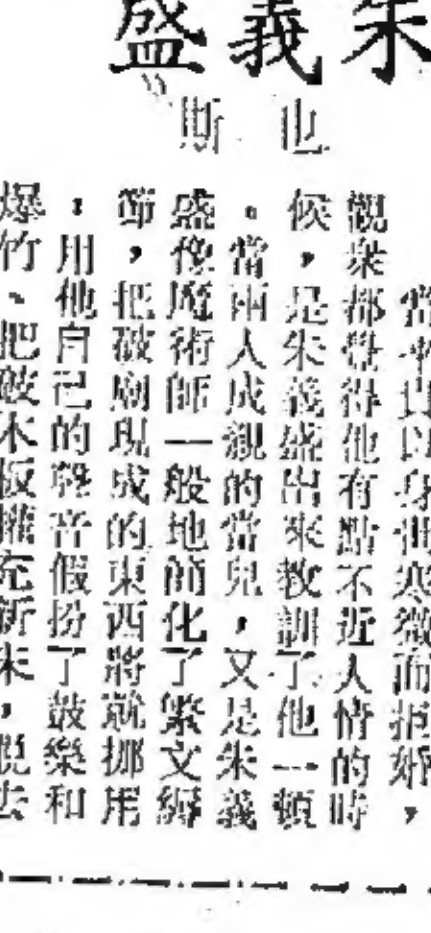 朱義盛
也斯
當平貴以身世寒微而拒婚，
觀衆都覺得他有點不近人情的時
候，是朱義盛出來教訓了他一頓
。當兩人成親的當兒，又是朱義
盛像魔術師一般地簡化了繁文縟
節，把破廟現成的東西將就挪用
，用他自己的聲音假扮了鼓樂和
爆竹、把破木板擁充新朱，脫去